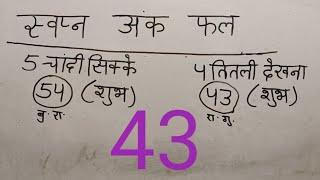 स्वप्न अंक फल
5 चांदी सिक्के
54 (शुभ)
बु. रा.
4 तितली देखना
43 (शुभ)
रा. गु.
43